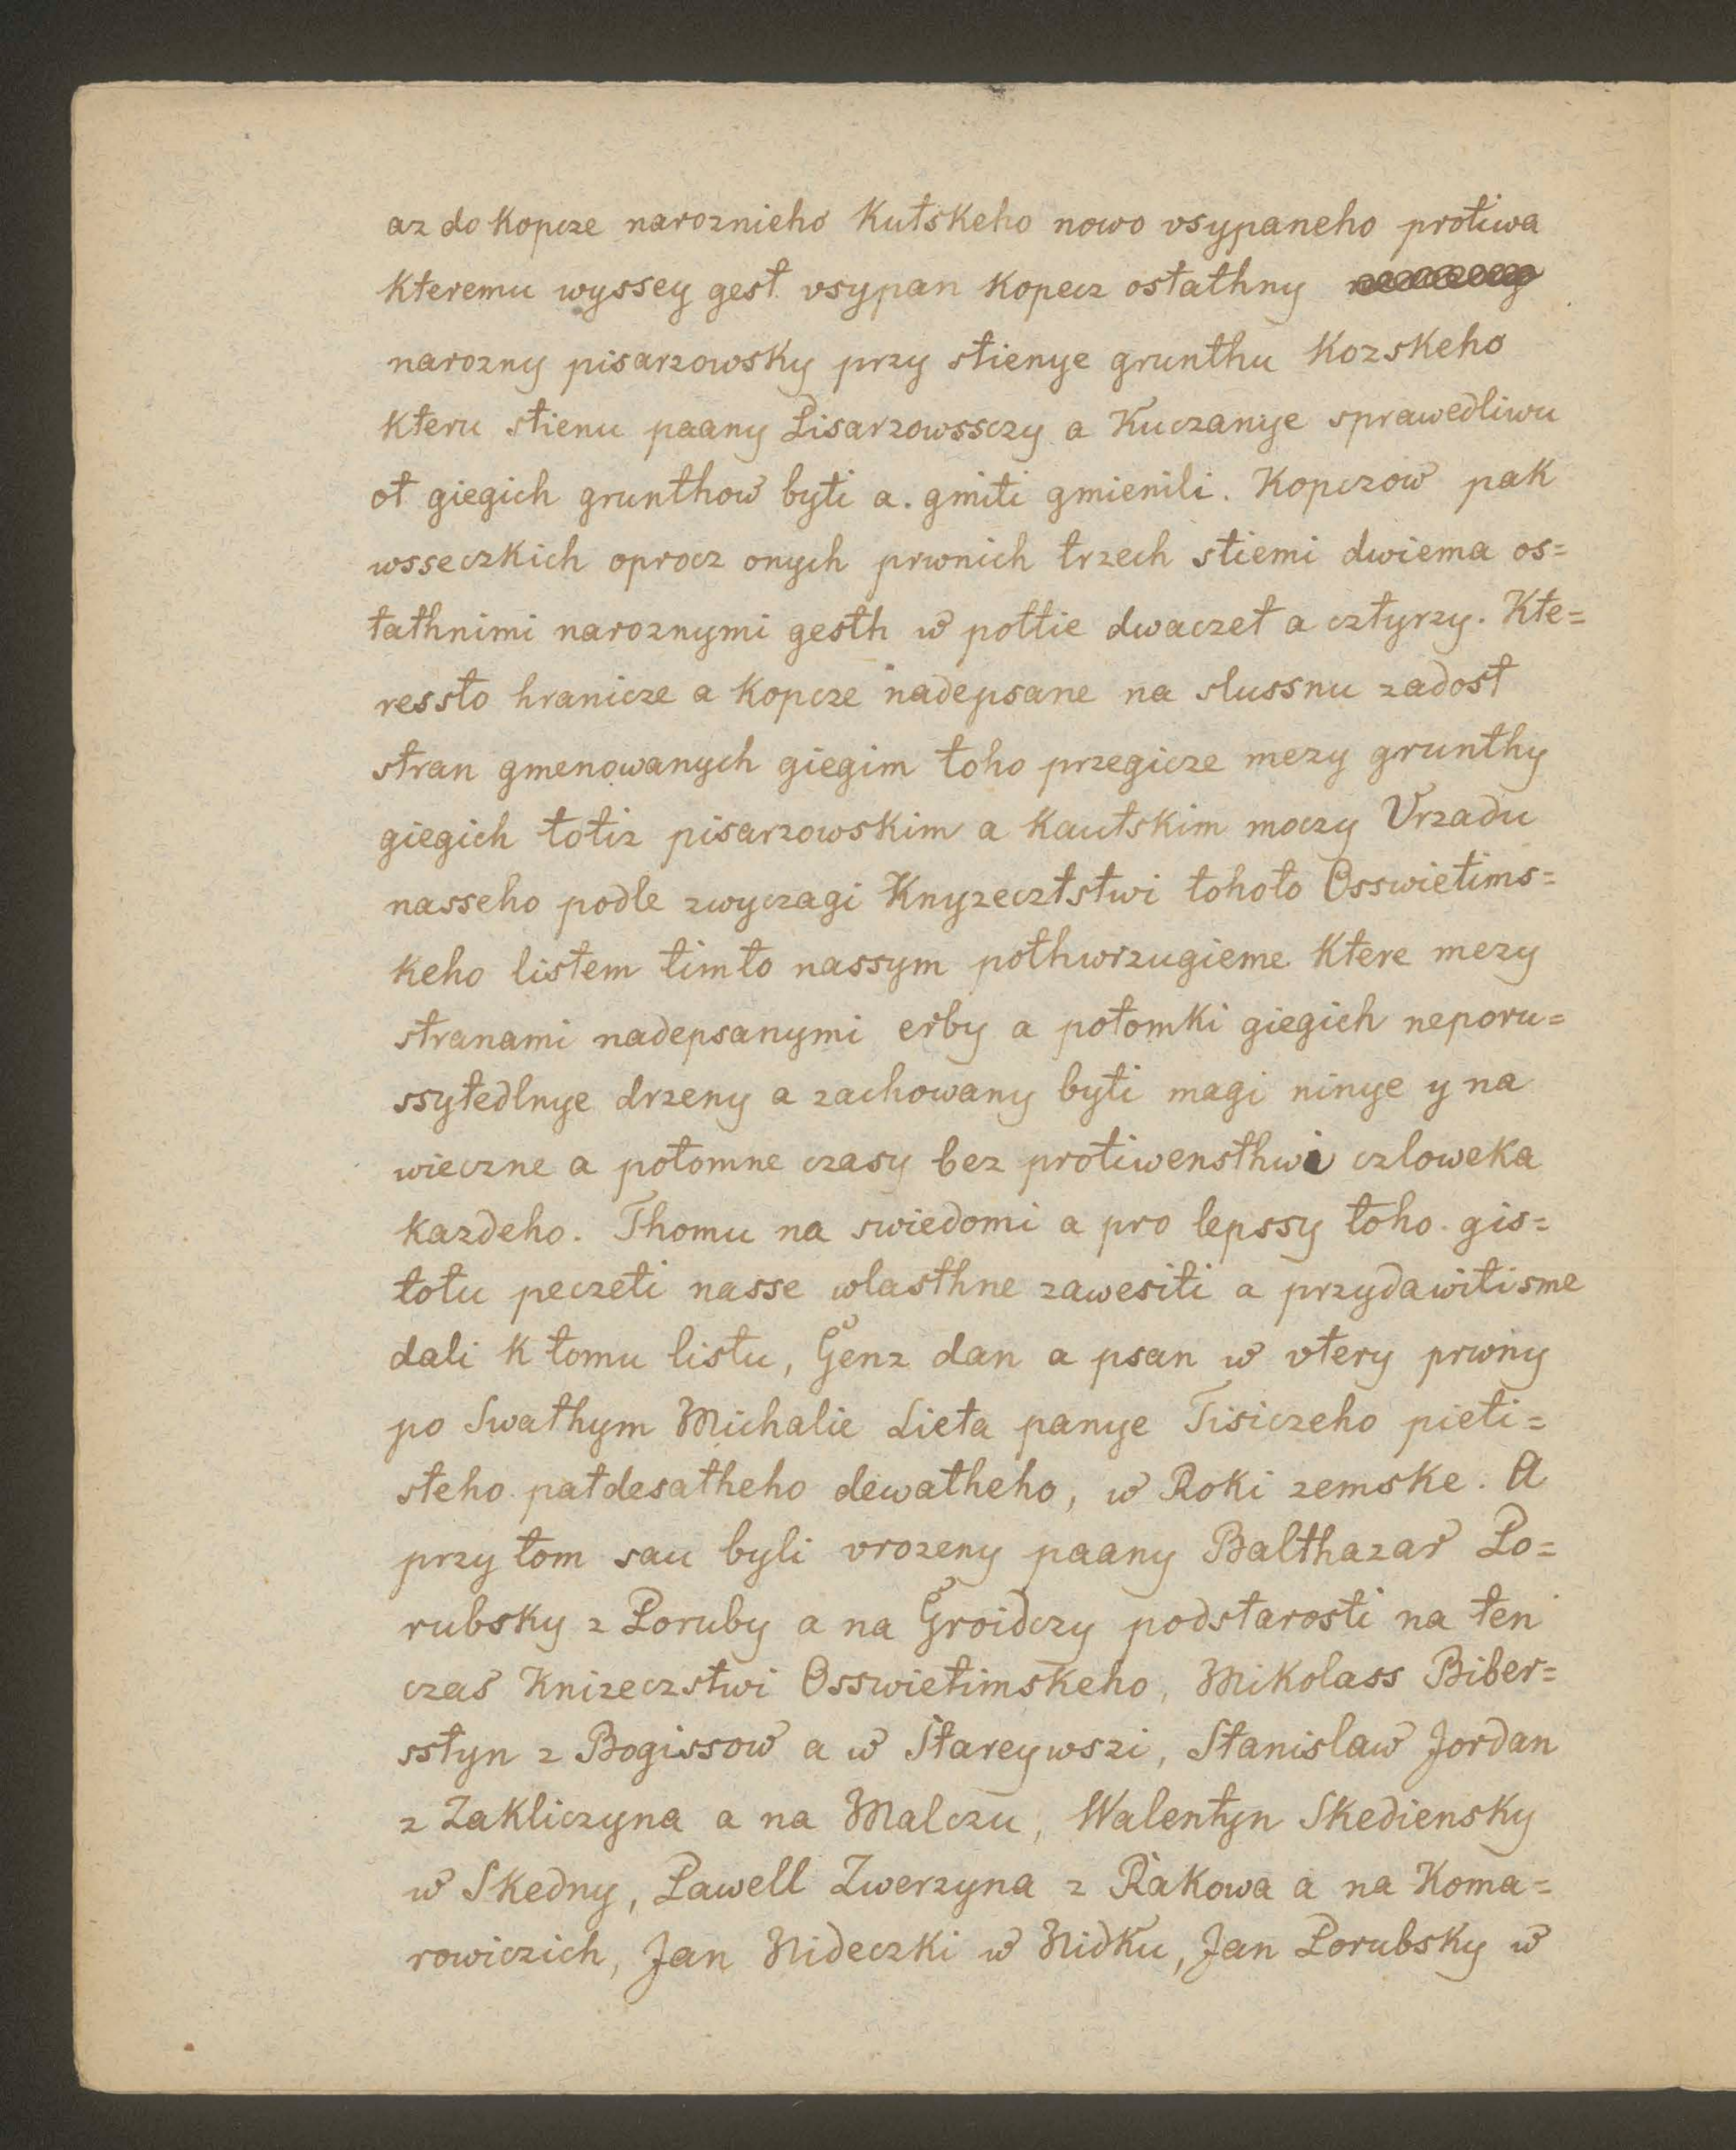 az do kopcze naroznieho Kutskeho nowo vsypaneho protiwa
kteremu wyssey gest vsypan kopecz ostathny
narozny pisarzowsky przy stienye grunthu Kozskeho
kteru stienu paany Pisarzowssczy a Kuczanye sprawedliwu
ot giegich grunthow byti a. gmiti gmienili. Kopczow pak
wsseczkich oprocz onych prwnich trzech stiemi dwiema os=
tathnimi naroznymi gesth w pottie dwaczet a cztyrzy. Kte=
ressto hranicze a kopcze nadepsane na slussnu zadost
stran gmenowanych giegim toho przegicze mezy grunthy
giegich totiz pisarzowskim a Kautskim moczy Vrzadu
nasseho podle zwyczagi Knyzecztstwi tohoto Osswietims=
keho listem timto nassym pothwrzugieme ktere mezy
stranami nadepsanymi erby a potomki giegich neporu=
ssytedlnye drzeny a zachowany byti magi ninye y na
wieczne a potomne czasy bez protiwensthwi czloweka
kazdeho. Thomu na swiedomi a pro lepssy toho gis=
totu peczeti nasse wlasthne zawesiti a przydawitisme
dali k tomu listu, Genz dan a psan w vtery prwny
po Swathym Michalie Lieta panye Tisiczeho pieti=
steho patdesatheho dewatheho, w Roki zemske. A
przy tom sau byli vrozeny paany Balthazar Po=
rubsky z Poruby a na Groidczy podstarosti na ten
czas Knizeczstwi Osswietimskeho, Mikolass Biber=
sstyn z Bogissow a w Stareywszi, Stanislaw Jordan
z Zakliczyna a na Malczu, Walentyn Skediensky
w Skedny, Pawell Zwerzyna z Rakowa a na Koma=
rowiczich, Jan Nideczki w Nidku, Jan Porubsky w